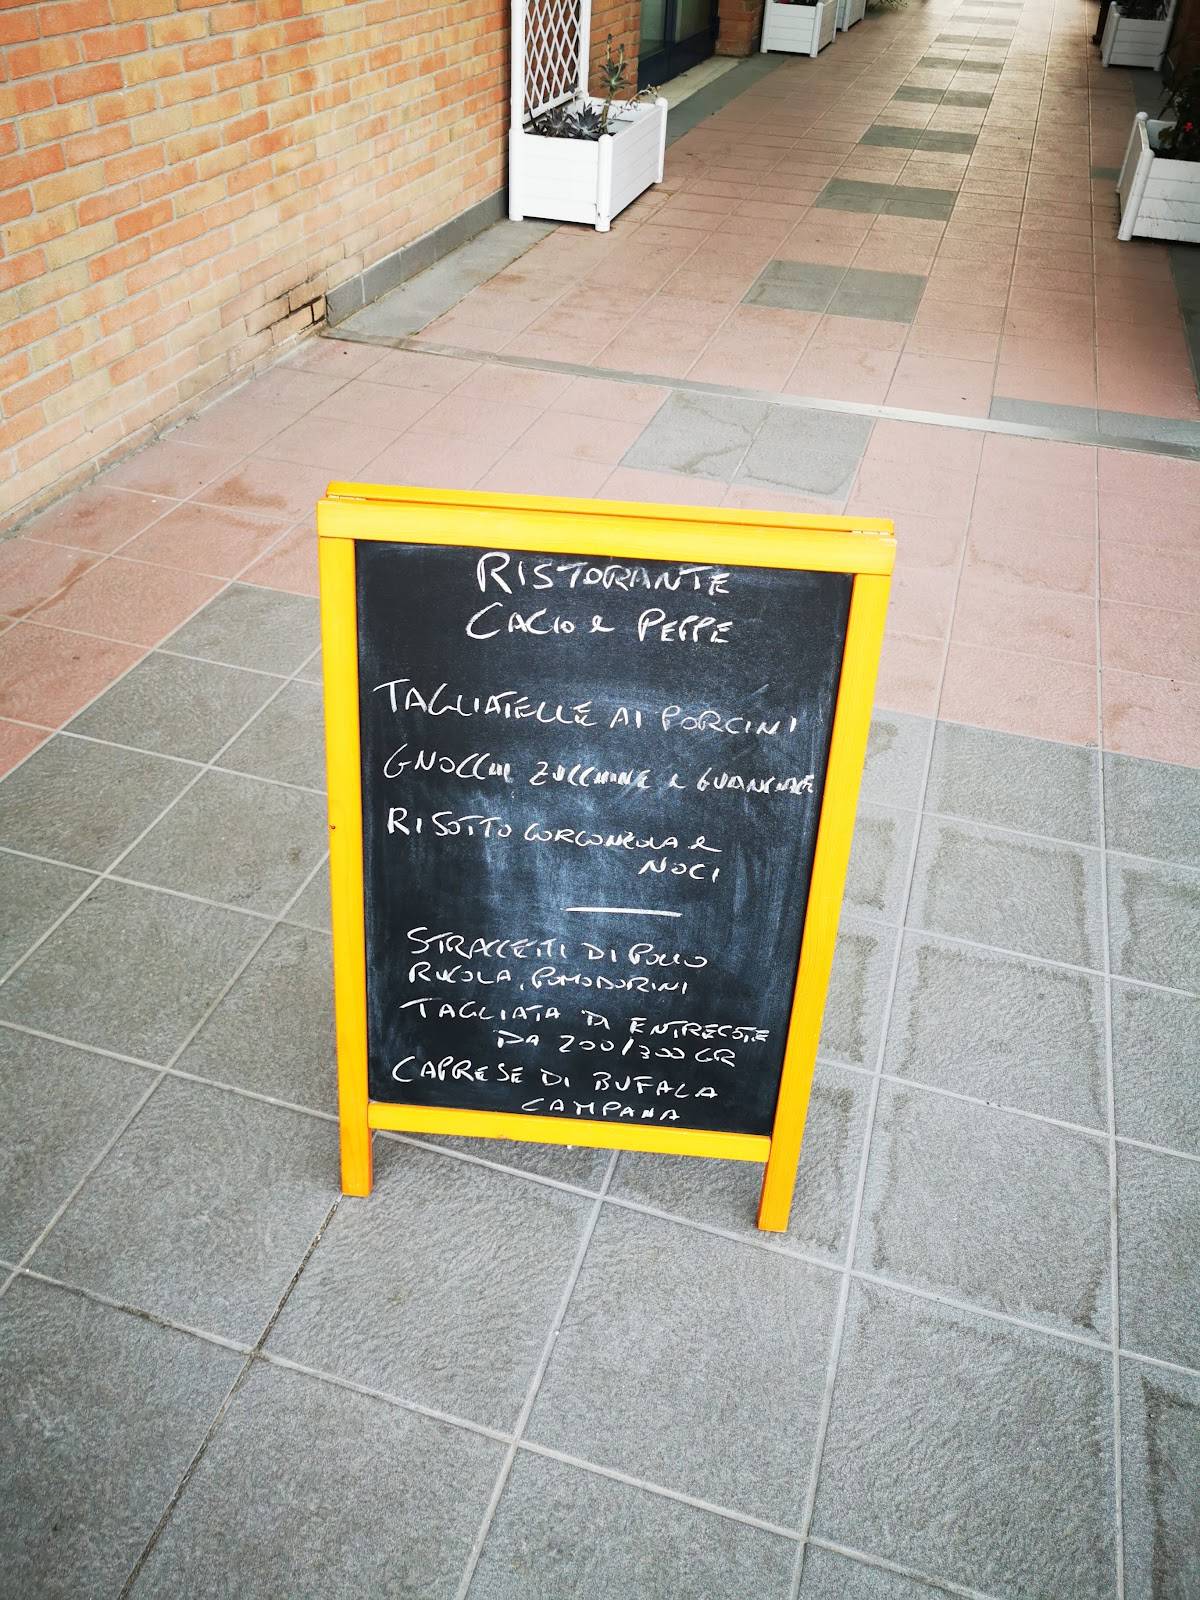 RISTORANTE
CACIO e PEPPE
TAGLIATELLE AI PORCINI
GNOCCHI ZUCCHINE e GUANCIALE
RISOTTO GORGONZOLA e
NOCI
STRACCETTI DI POLLO
RUCOLA, POMODORINI
TAGLIATA DI ENTRECOTE
DA 200/300 GR
CAPRESE DI BUFALA
CAMPANA